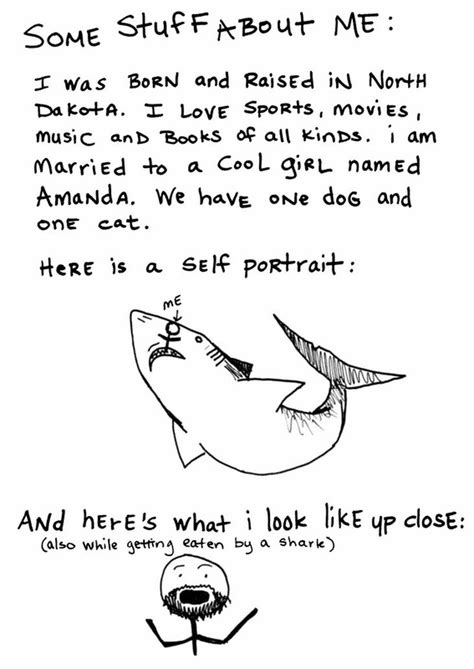 SOME STUFF ABOUT ME:
I was BORN and RaisEd iN NortH
DaKotA. I LovE SPorts, movies,
music anD Books of all KinDs. i am
married to a CooL giRL namEd
AmanDA. We havE oNe doG and
onE cat.
HeRE is a sElf portrait:
mE
AnD hErE's what i look likE up closE:
(also while getting eaten by a shark)